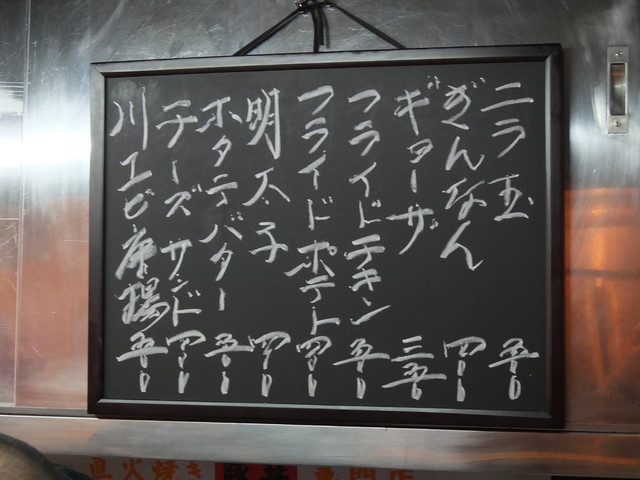 ニラ玉 五〇〇
ぎんなん 四〇〇
ギョーザ 三五〇
フライドチキン 五〇〇
フライドポテト 四〇〇
明太子 四〇〇
ホタテバター 五〇〇
チーズサンド 四〇〇
川エビ唐揚 五〇〇
直火焼き